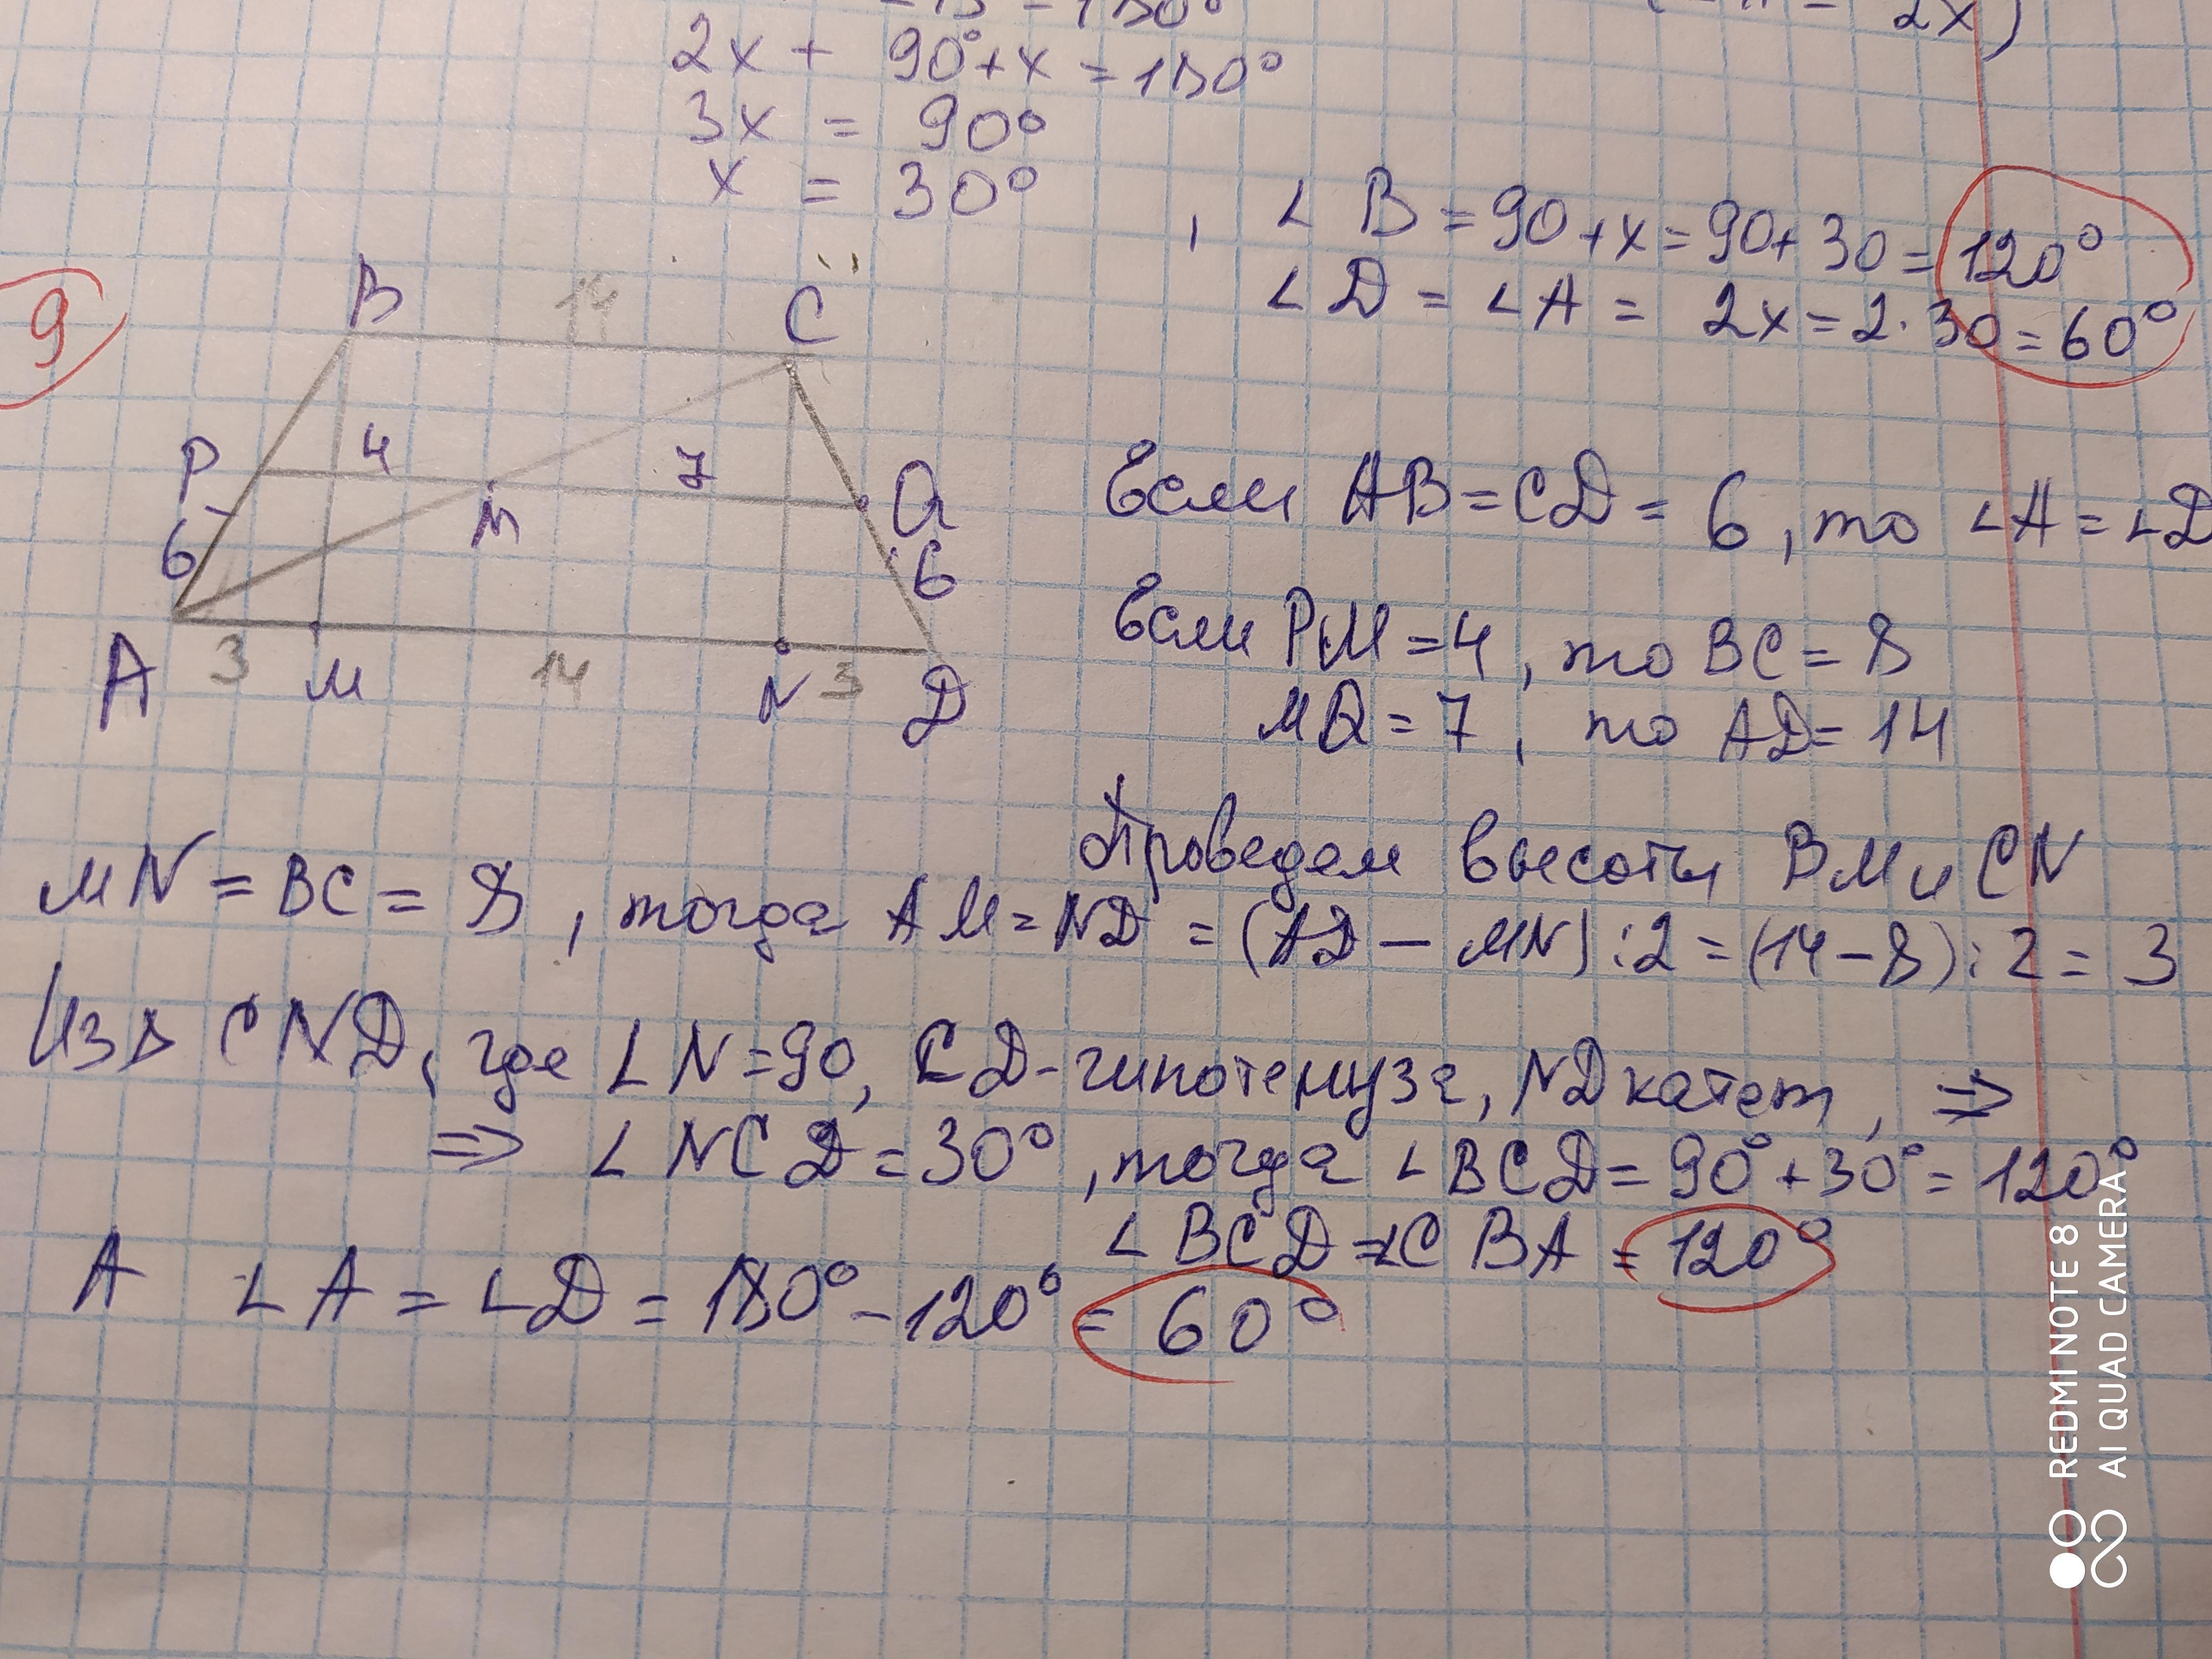 2x + 90°+x = 180°
3x = 90°
x = 30°
, ∠B = 90+x = 90+30 = 120°
∠D = ∠A = 2x = 2·30 = 60°
9
B 14 C
P 4 M 7 Q
6 6
A 3 M 14 N 3 D
Если AB = CD = 6, то ∠A = ∠D
Если PM = 4, то BC = 8
MQ = 7, то AD = 14
Проведем высоты BM и CN
MN = BC = 8, тогда AM = ND = (AD – MN) : 2 = (14 – 8) : 2 = 3
Из △ CND, где ∠N = 90, CD - гипотенуза, ND катет, ⇒
⇒ ∠NCD = 30°, тогда ∠BCD = 90° + 30° = 120°
∠BCD = ∠CBA = 120°
A ∠A = ∠D = 180° – 120° = 60°
REDMI NOTE 8
AI QUAD CAMERA